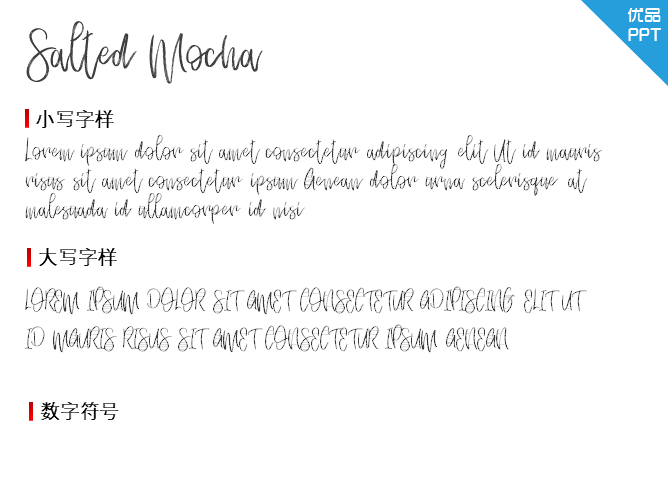 优品
PPT
Salted Mocha
小写字样
Lorem ipsum dolor sit amet consectetur adipiscing elit Ut id mauris
risus sit amet consectetur ipsum Aenean dolor urna scelerisque at
malesuada id ullamcorper id nisi
大写字样
LOREM IPSUM DOLOR SIT AMET CONSECTETUR ADIPISCING ELIT UT
ID MAURIS RISUS SIT AMET CONSECTETUR IPSUM AENEAN
数字符号